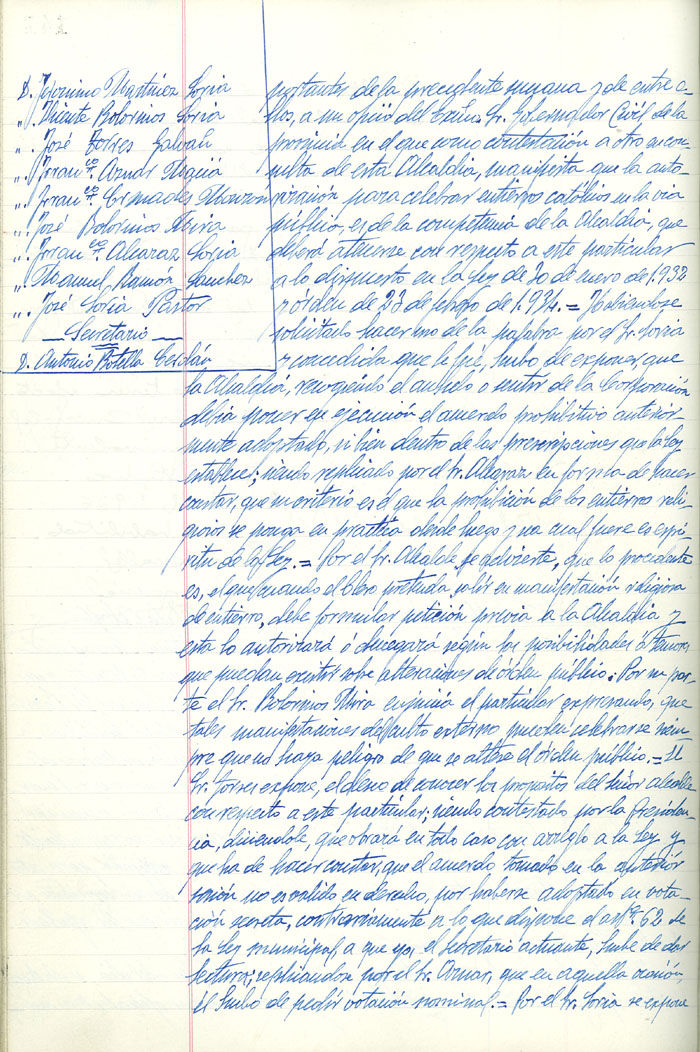 D. Jerónimo Martínez Soria
". Vicente Bolorinos Soria
". José Torres Galvañ
". Fran.co Aznar
". Fran.co Cremades
". José Bolorinos Mira
". Fran.co Alcaraz Soria
". Manuel Ramón Sanchez
". José Soria Pastor
Secretario
D. Antonio Botella Cerdán
portantes de la precedente semana y de entre e-
llos, a un oficio del Exmo. Sr. Gobernador Civil de la
provincia en el que como contestación a otro en con-
sulta de esta Alcaldía, manifiesta que la auto-
rización para celebrar entierros católicos en la vía
pública, es de la competencia de la Alcaldía, que
deberá atenerse con respecto a este particular
a lo dispuesto en la Ley de 30 de enero de 1.932
y órden de 23 de febrero de 1.934. = Habiendose
solicitado hacer uso de la palabra por el Sr. Soria
y concedida que le fué, hubo de exponer, que
la Alcaldía, recogiendo el acuerdo o sentir de la Corporación
debía poner en ejecución el acuerdo prohibitivo anterior-
mente adoptado, si bien dentro de las prescripciones que la Ley
establece; siendo replicado por el Sr. Alcaraz en forma de hacer
constar, que su criterio es el que la prohibición de los entierros reli-
giosos se ponga en practica desde luego y sea cual fuere es espí-
ritu de la Ley. = Por el Sr. Alcalde se advierte, que lo procedente
es, el que cuando el Clero pretenda salir en manifestación religiosa
de entierro, debe formular petición previa a la Alcaldía y
esta lo autorizará ó denegará según las posibilidades ó temores
que puedan existir sobre alteraciones de órden público. Por su par-
te el Sr. Bolorinos Mira el particular expresando, que
tales manifestaciones del culto externo pueden celebrarse siem-
pre que no haya peligro de que se altere el órden público. = El
Sr. Torres expone, el deseo de conocer los propositos del señor alcalde
con respecto a este particular; siendo contestado por la Presiden-
cia, diciendole, que obrará en todo caso con arreglo a la Ley y
que ha de hacer constar, que el acuerdo tomado en la anterior
sesión no es valido en derecho, por haberse adoptado en vota-
ción secreta, contrariamente a lo que dispone el artº. 62 de
la Ley municipal, a que yo, el Secretario actuante, hube de dar
lectura; replicandose por el Sr. Aznar, que en aquella ocasión,
él hubo de pedir votación nominal. = Por el Sr. Soria se expone